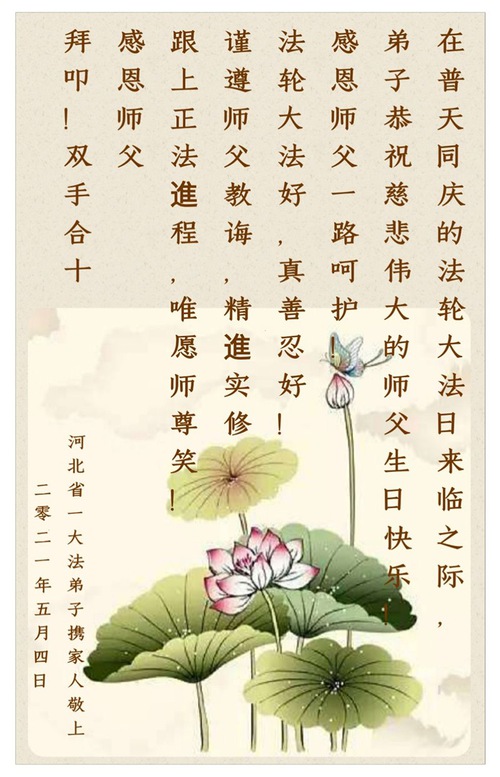 在普天同庆的法轮大法日来临之际，
弟子恭祝慈悲伟大的师父生日快乐！
感恩师父一路呵护
法轮大法好，真善忍好！
谨遵师父教诲，精進实修
跟上正法進程，唯愿师尊笑！
感恩师父
拜叩！双手合十
河北省一大法弟子携家人敬上
二零二一年五月四日